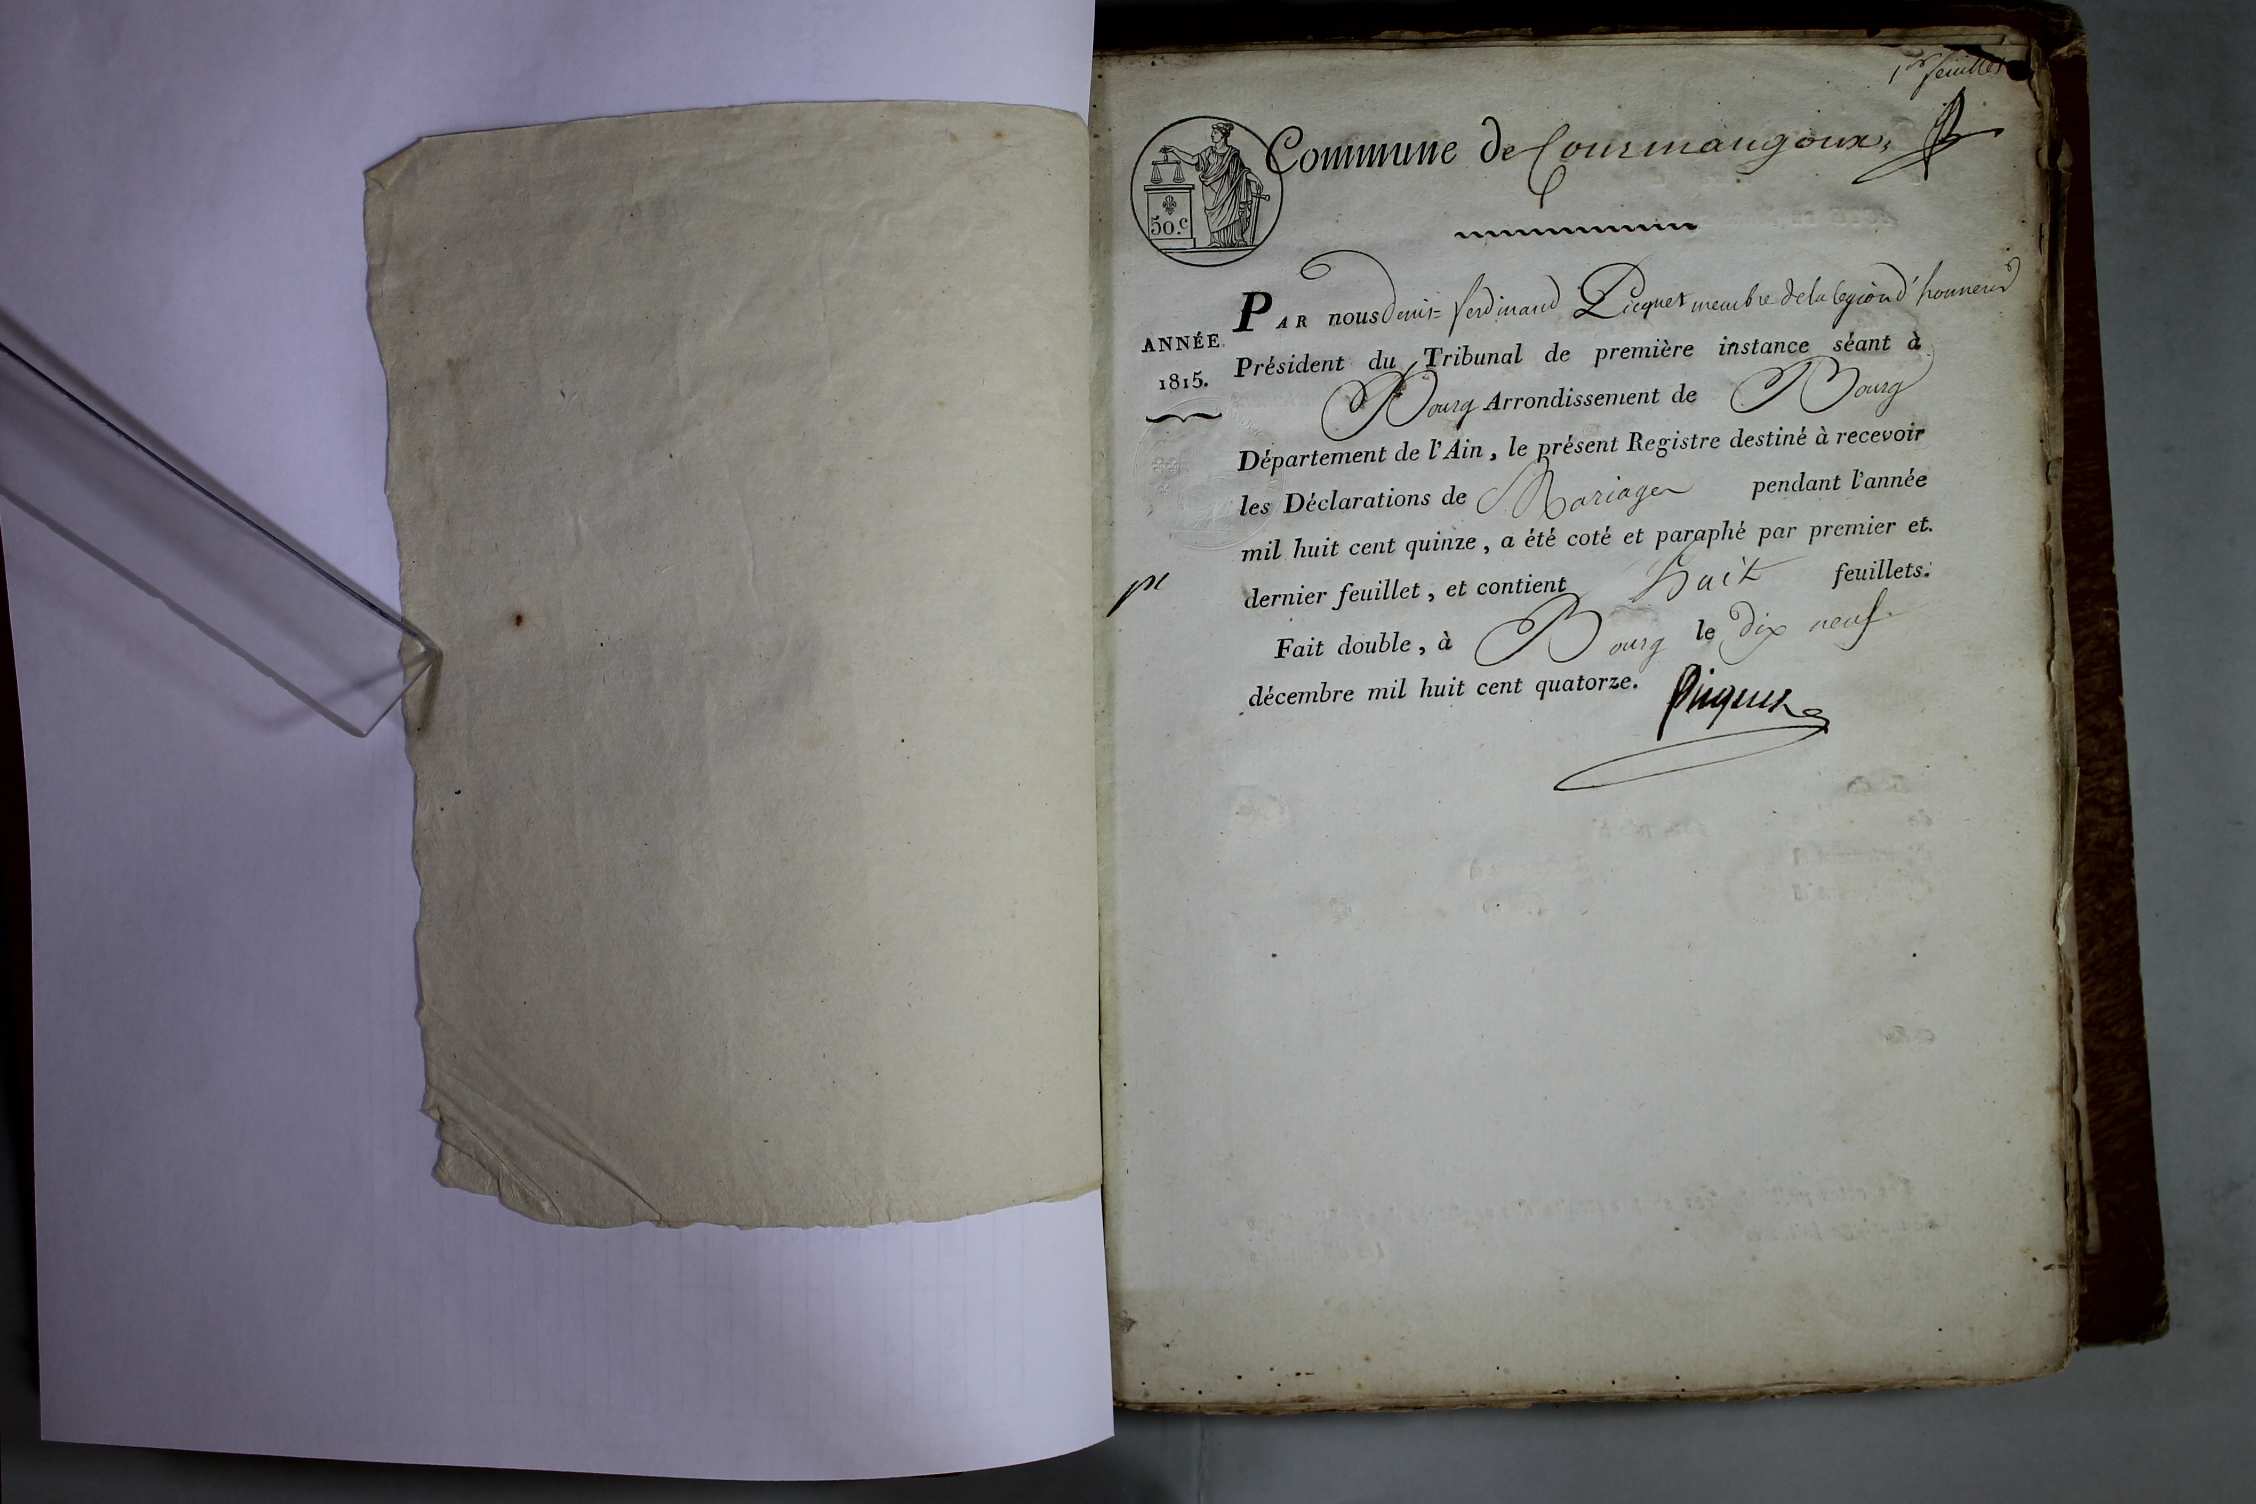 1er feuillet
Commune de Courmangoux,
50.c
PAR nous Denis= ferdinand Picquet membre de la legion d'honneur
ANNÉE
1815.
Président du Tribunal de première instance séant à
Bourg Arrondissement de Bourg
Département de l'Ain, le présent Registre destiné à recevoir
les Déclarations de Mariages pendant l'année
mil huit cent quinze, a été coté et paraphé par premier et
dernier feuillet, et contient huit feuillets.
Fait double, à Bourg le dix neuf
décembre mil huit cent quatorze.
Picquet